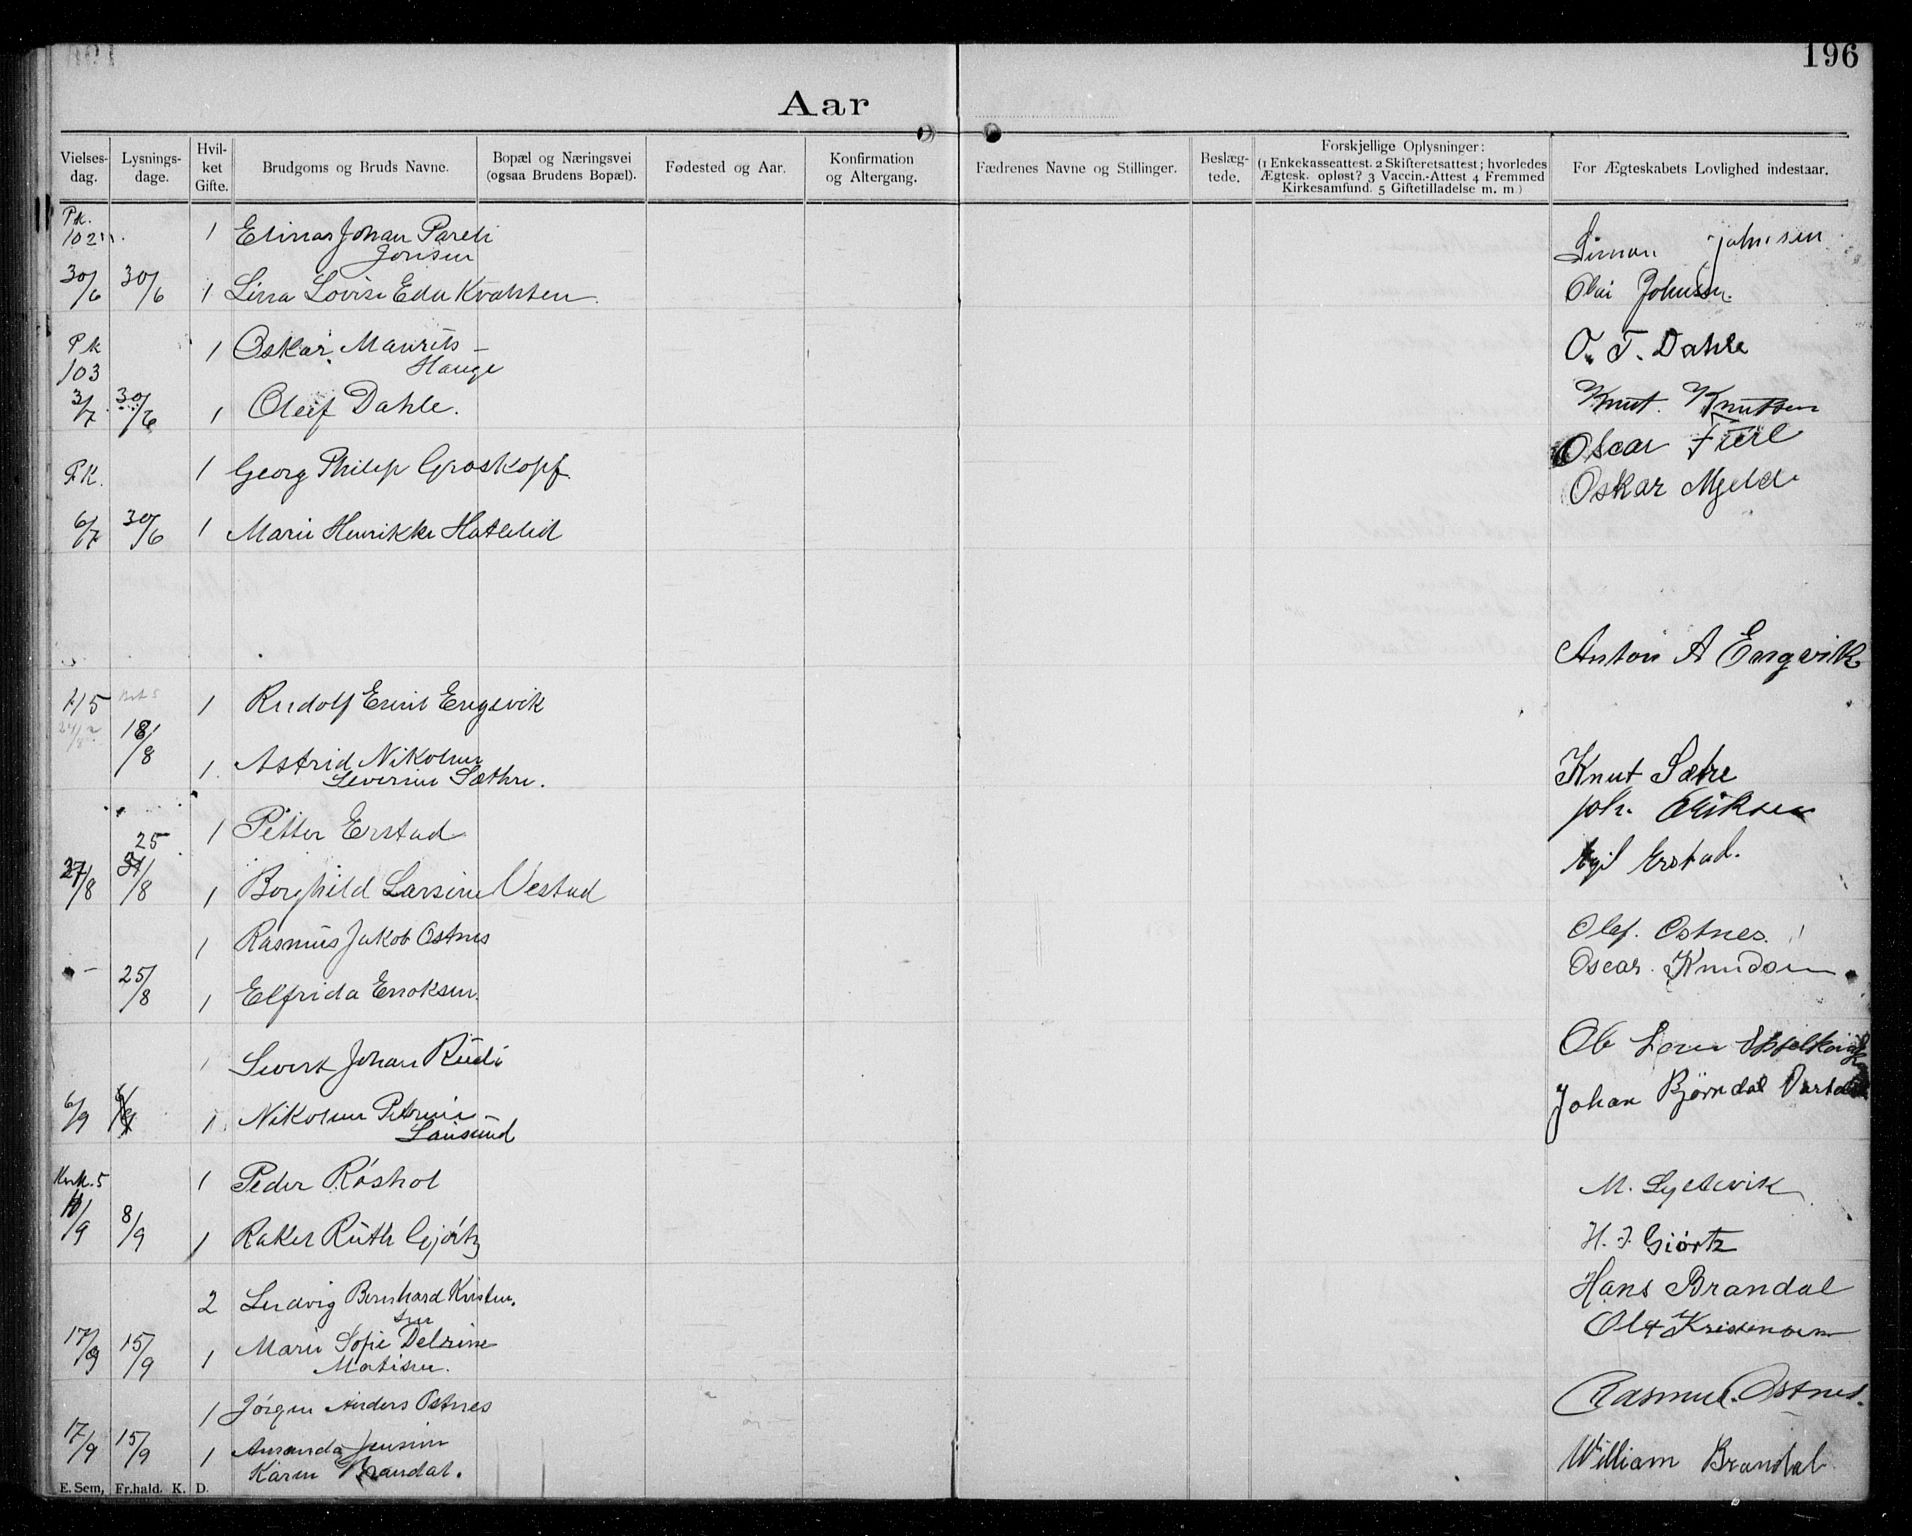 196
Aar
Vielses-dag. Lysnings-dage. Hvil-ket Gifte. Brudgoms og Bruds Navne. Bopæl og Næringsvei (ogsaa Brudens Bopæl). Fødested og Aar. Konfirmation og Altergang. Fædrenes Navne og Stillinger. Beslæg-tede. Forskjellige Oplysninger: (1 Enkekasseattest. 2 Skifteretsattest; hvorledes Ægtesk. opløst? 3 Vaccin.-Attest 4 Fremmed Kirkesamfund. 5 Giftetilladelse m. m.) For Ægteskabets Lovlighed indestaar.
Pk. 102 1 Johan
Jonsen Simon Johnsen
30/6 30/6 1 Lina Lovise Eda Olai Johnsen.
Pk 103 1 Oskar Maurits
Hauge O. T. Dahle
3/7 30/6 1 Oleif Dahle. Knut. Knutsen
Pk. 1 Georg Philip Groskopf Oscar
Oskar Mjelde
6/7 30/6 1 Marie Henrikke Hatlelid
Anton A Engvik
1 Rudolf Engsvik
18/8 1 Astrid Nikoline
Severine Sæthre. Knut Sætre
25 1 Petter Erstad Joh. Eriksen
27/8 /8 1 Borghild Larsine Vestad Erstad.
1 Rasmus Jakob Ostnes Olef. Ostnes.
25/8 1 Elfrida Oscar. Knudsen
1 Sivert Johan Ole
6/9 1 Nikoline Petrine Johan Bjørndal
1 Peder Røshol M.
/9 8/9 1 Rakel Ruth Gjørtz H. J. Giørtz
2 Ludvig Bernhard Kristen-
sen Hans Brandal
17/9 15/9 1 Marie Sofie
Matisen. Kristensen
1 Jørgen Anders Ostnes Rasmus. Ostnes.
17/9 15/9 1 Amanda Jensine
Karen Brandal. William Brandal
E. Sem, Fr.hald. K. D.